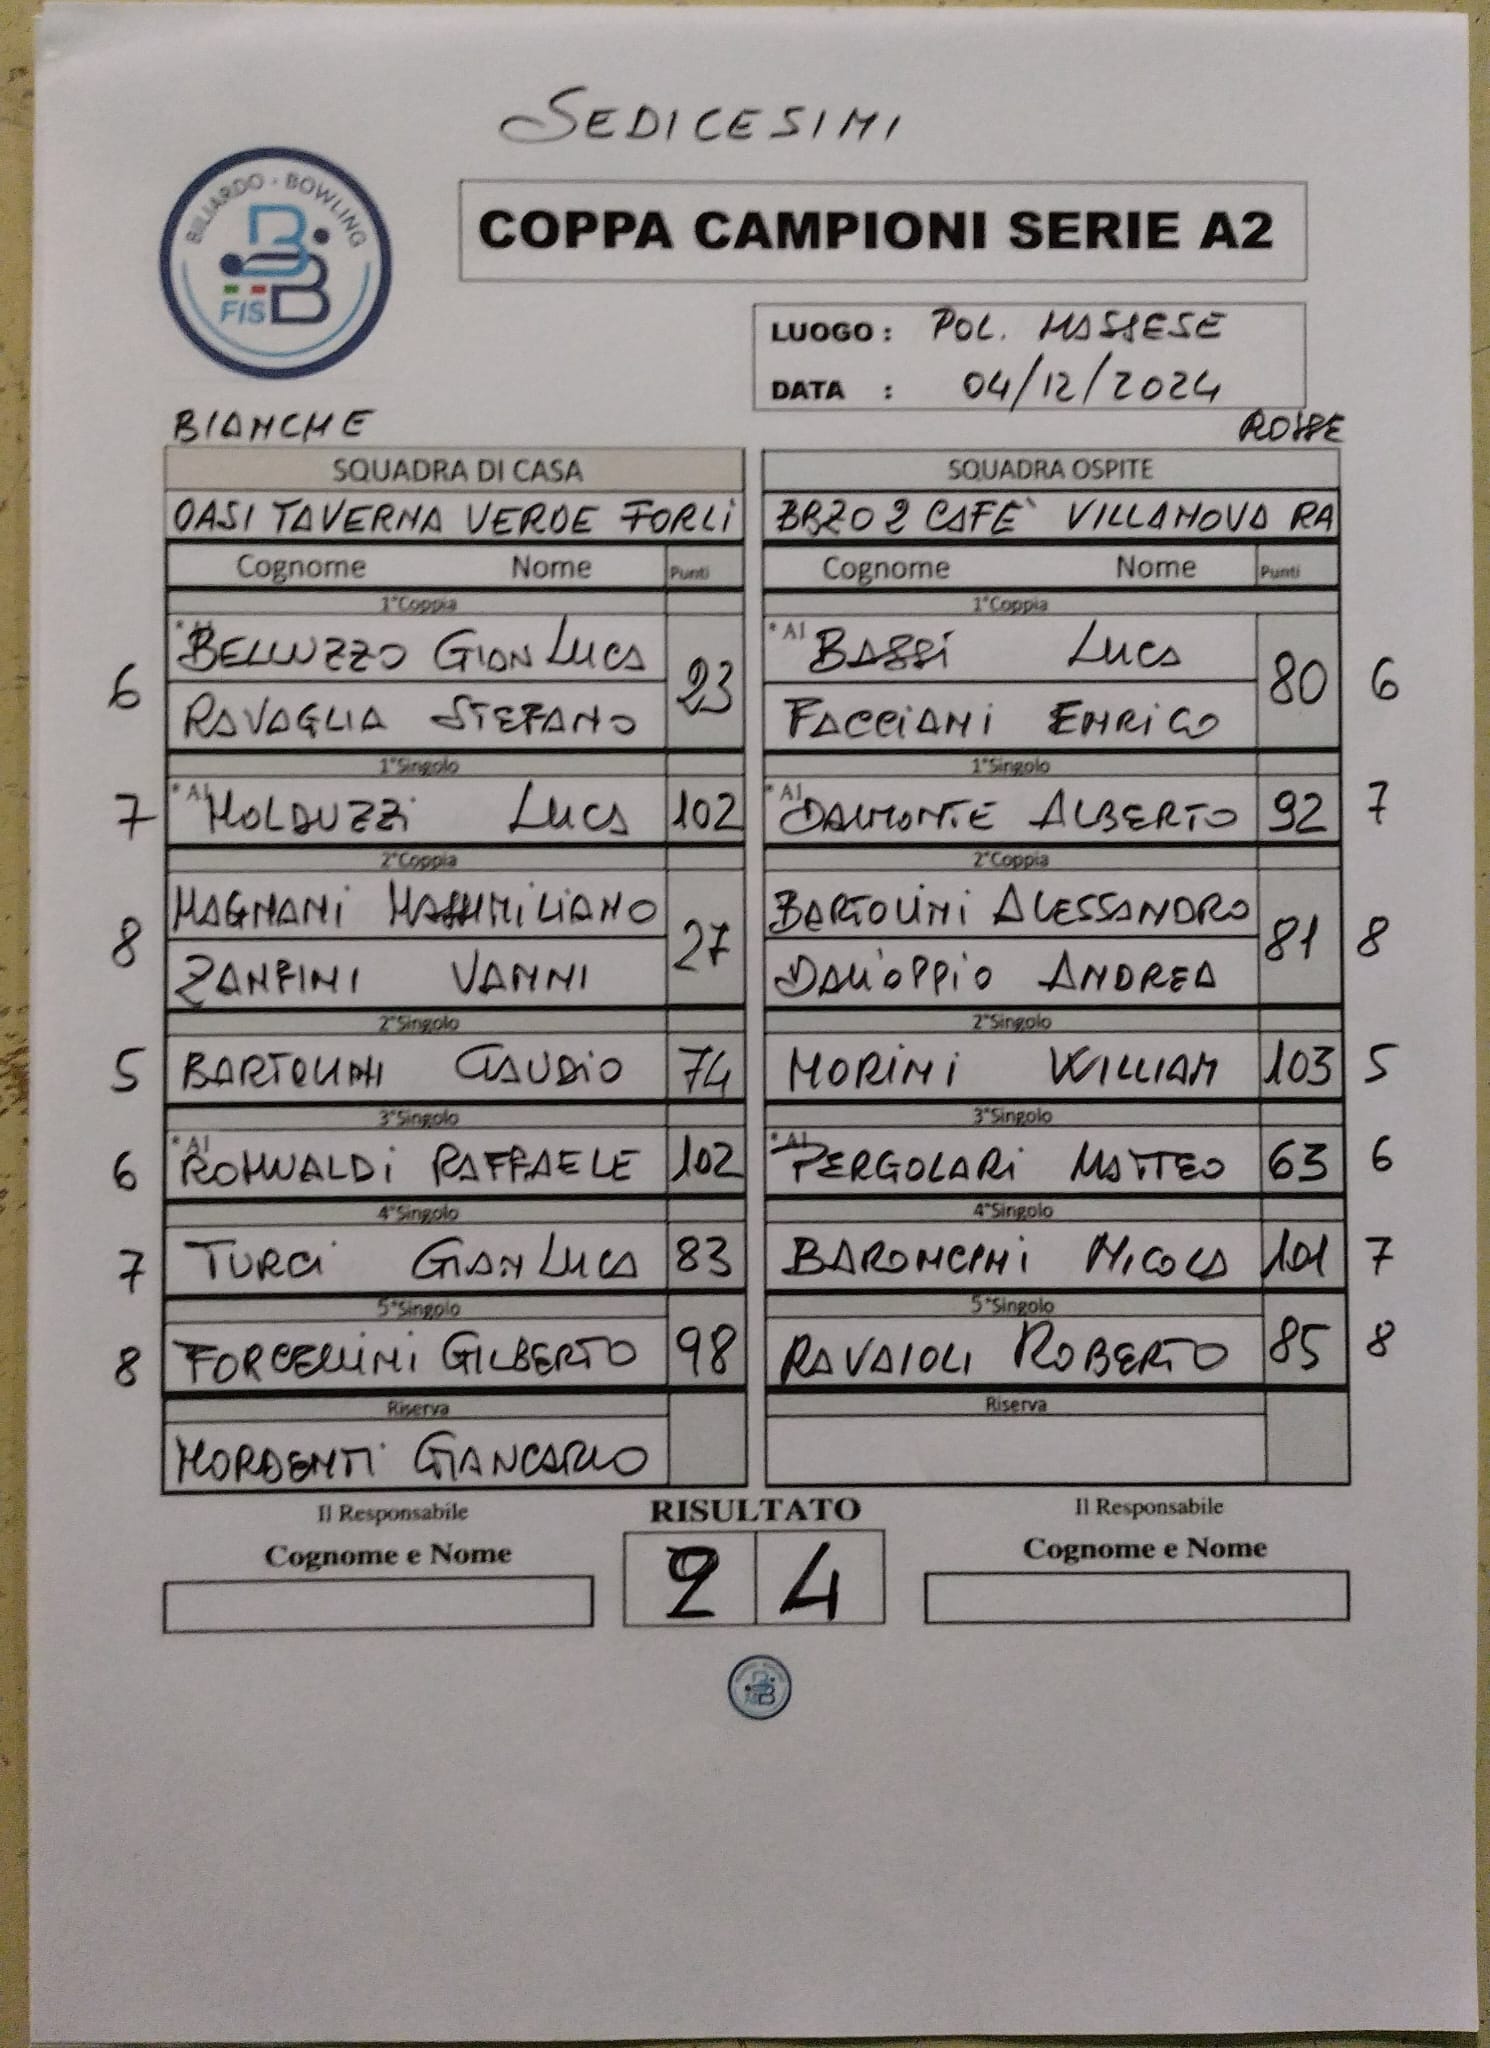 SEDICESIMI
BILIARDO - BOWLING
FISBB
COPPA CAMPIONI SERIE A2
LUOGO : POL. MASSESE
DATA : 04/12/2024
BIANCHE ROSSE
SQUADRA DI CASA SQUADRA OSPITE
OASI TAVERNA VERDE FORLI BRZO 2 CAFE` VILLANOVA RA
Cognome Nome Punti Cognome Nome Punti
1°Coppia 1°Coppia
6 * A1 BELLUZZO GIANLUCA 23 * A1 BASSI LUCA 80 6
RAVAGLIA STEFANO FACCIANI ENRICO
1°Singolo 1°Singolo
7 * A1 MOLDUZZI LUCA 102 * A1 DALMONTE ALBERTO 92 7
2°Coppia 2°Coppia
8 MAGNANI MASSIMILIANO 27 BARTOLINI ALESSANDRO 81 8
ZANFINI VANNI DALL'OPPIO ANDREA
2°Singolo 2°Singolo
5 BARTOLINI CLAUDIO 74 MORINI WILLIAM 103 5
3°Singolo 3°Singolo
6 * A1 ROMUALDI RAFFAELE 102 * A1 PERGOLARI MATTEO 63 6
4°Singolo 4°Singolo
7 TURCI GIANLUCA 83 BARONCINI NICOLA 101 7
5°Singolo 5°Singolo
8 FORCELLINI GILBERTO 98 RAVAIOLI ROBERTO 85 8
Riserva Riserva
MORDENTI GIANCARLO
Il Responsabile RISULTATO Il Responsabile
Cognome e Nome 2 4 Cognome e Nome